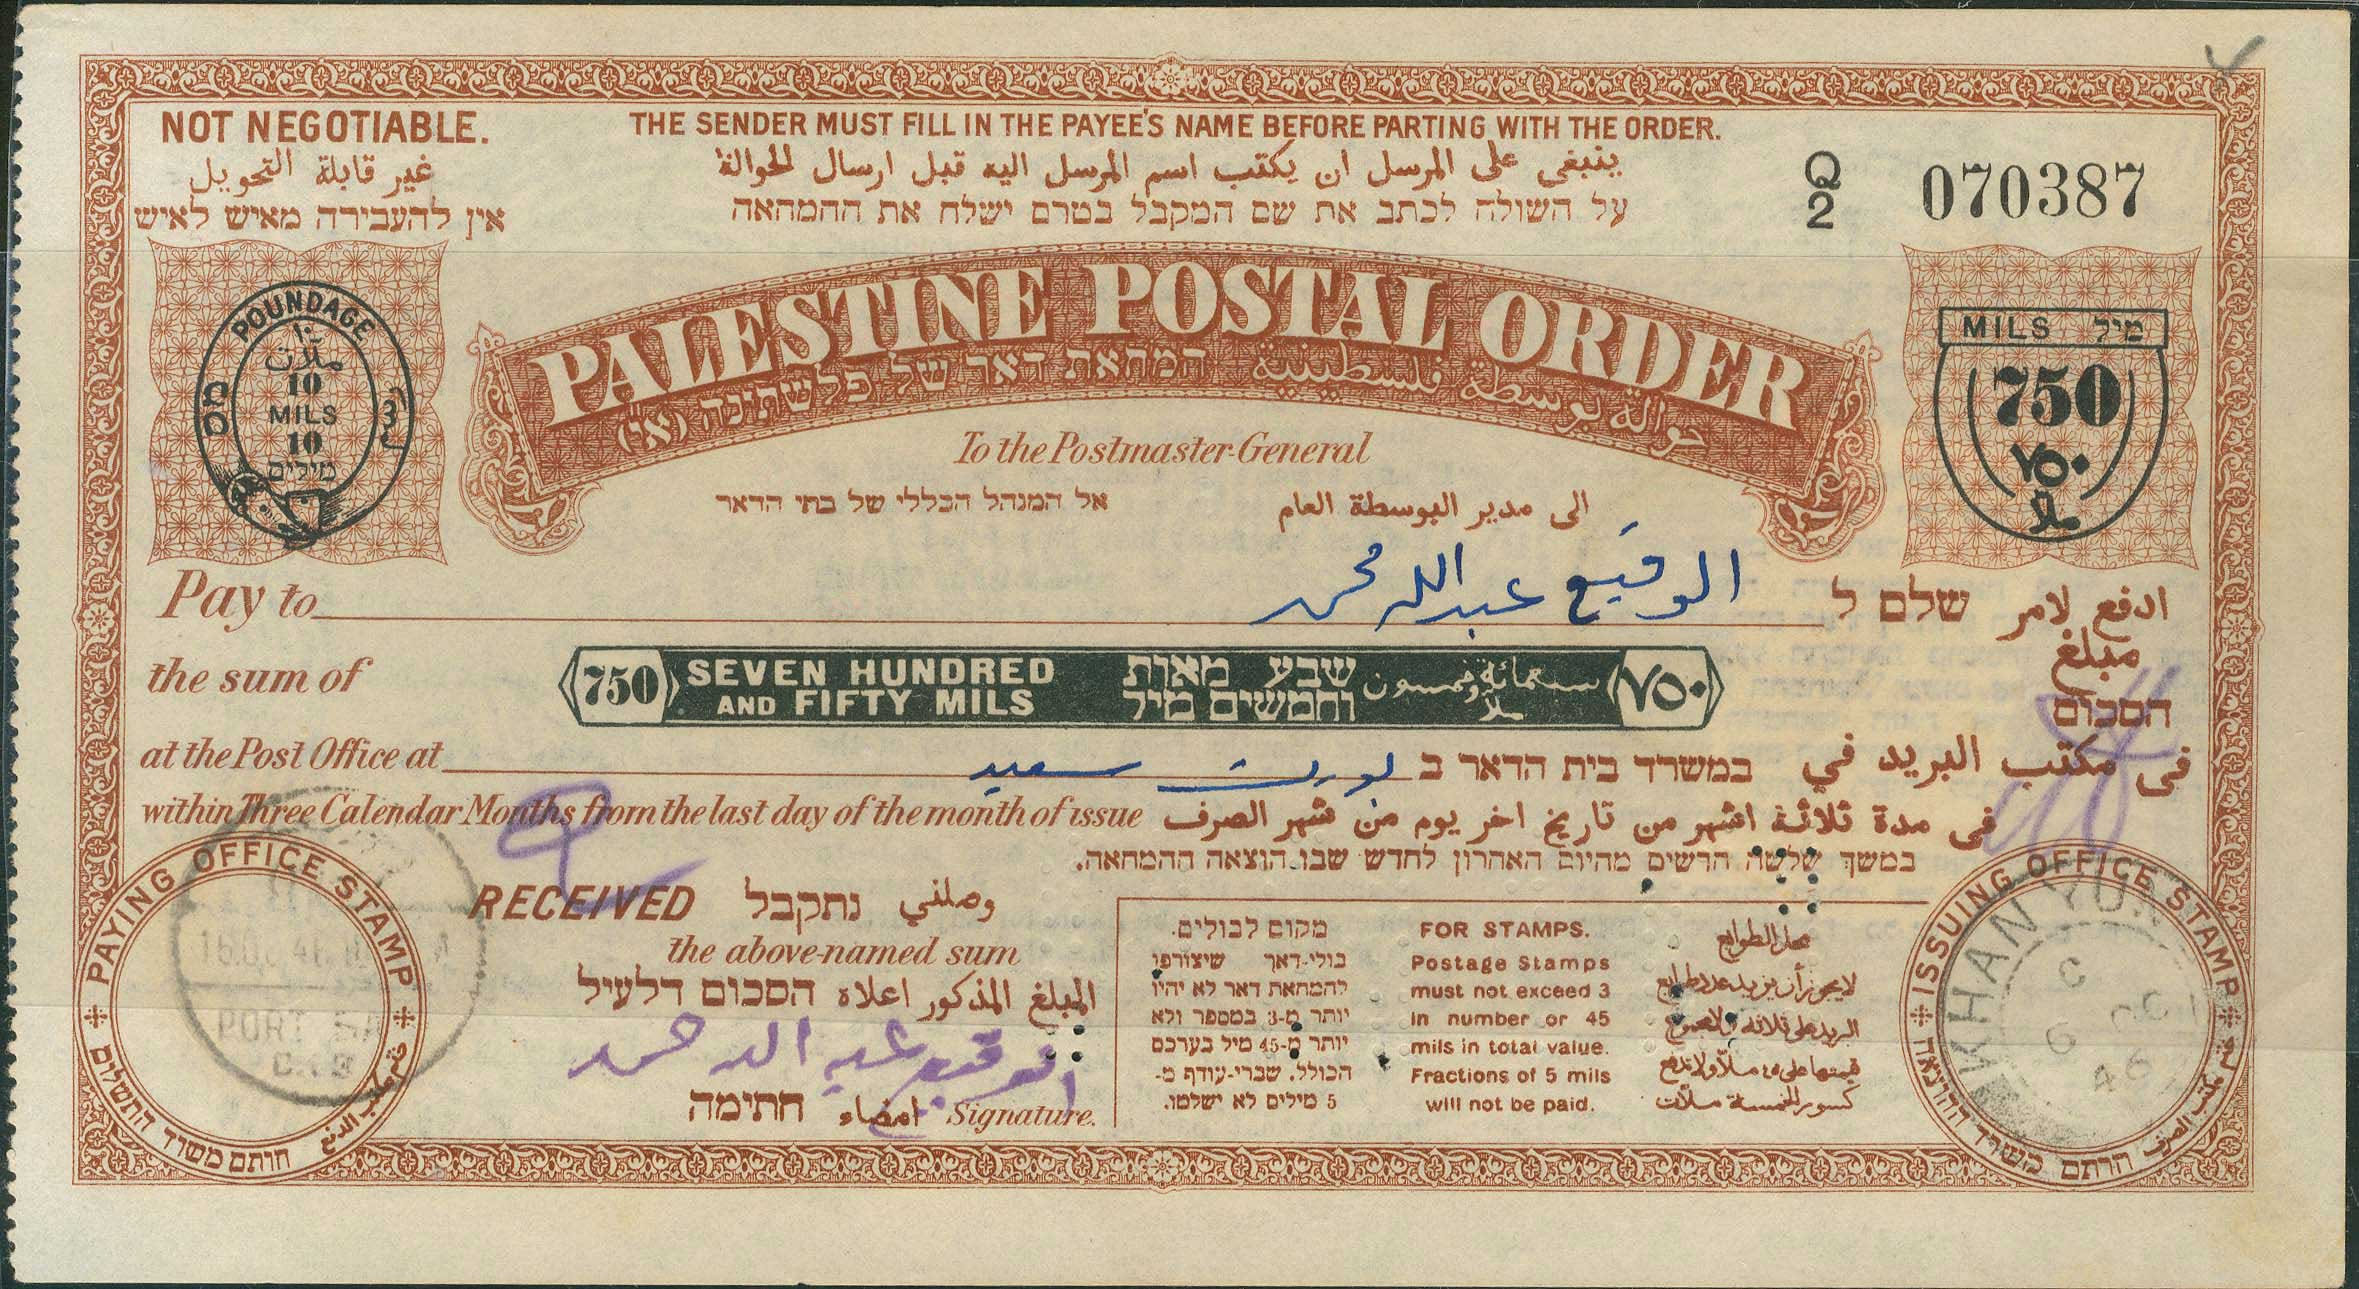 NOT NEGOTIABLE.
THE SENDER MUST FILL IN THE PAYEE'S NAME BEFORE PARTING WITH THE ORDER.
غير قابلة التحويل
ينبغى على المرسل ان يكتب اسم المرسل اليه قبل ارسال الحوالة
אין להעבירה מאיש לאיש
על השולח לכתב את שם המקבל בטרם ישלח את ההמחאה
Q/2 070387
POUNDAGE
١٠
ملات
10
MILS
10
מילים
PALESTINE POSTAL ORDER
حوالة بوسطة فلسطينية המחאת דאר של פלשתינה (א״י)
MILS מיל
750
٧٥٠
ملا
To the Postmaster-General
אל המנהל הכללי של בתי הדאר
الى مدير البوسطة العام
Pay to عبدالله محمد שלם ל ادفع لامر
the sum of 750 SEVEN HUNDRED AND FIFTY MILS שבע מאות וחמשים מיל سبعمائة وخمسون ملا ٧٥٠ مبلغ הסכום
at the Post Office at بورت سعيد במשרד בית הדאר ב في مكتب البريد في
within Three Calendar Months from the last day of the month of issue فى مدة ثلاثة اشهر من تاريخ اخر يوم من شهر الصرف
במשך שלשה חדשים מהיום האחרון לחדש שבו הוצאה ההמחאה.
PAYING OFFICE STAMP
חותם משרד התשלום
ختم مكتب الدفع
PORT SA
RECEIVED נתקבל وصلني
the above-named sum
المبلغ المذكور اعلاه הסכום דלעיל
חתימה امضاء Signature.
מקום לבולים.
בולי-דאר שיצורפו
להמחאת דאר לא יהיו
יותר מ-3 במספר ולא
יותר מ-45 מיל בערכם
הכולל. שברי-עודף מ-
5 מילים לא ישלמו.
FOR STAMPS.
Postage Stamps
must not exceed 3
in number or 45
mils in total value.
Fractions of 5 mils
will not be paid.
محل الطوابع
لا يجوز أن يزيد عدد طوابع
البريد على ثلاثة ولا مجموع
قيمتها على ٤٥ ملاً ولا تدفع
كسور الخمسة ملات
ISSUING OFFICE STAMP
חותם משרד ההוצאה
ختم مكتب الصرف
KHAN YUN
C
6 OC
46